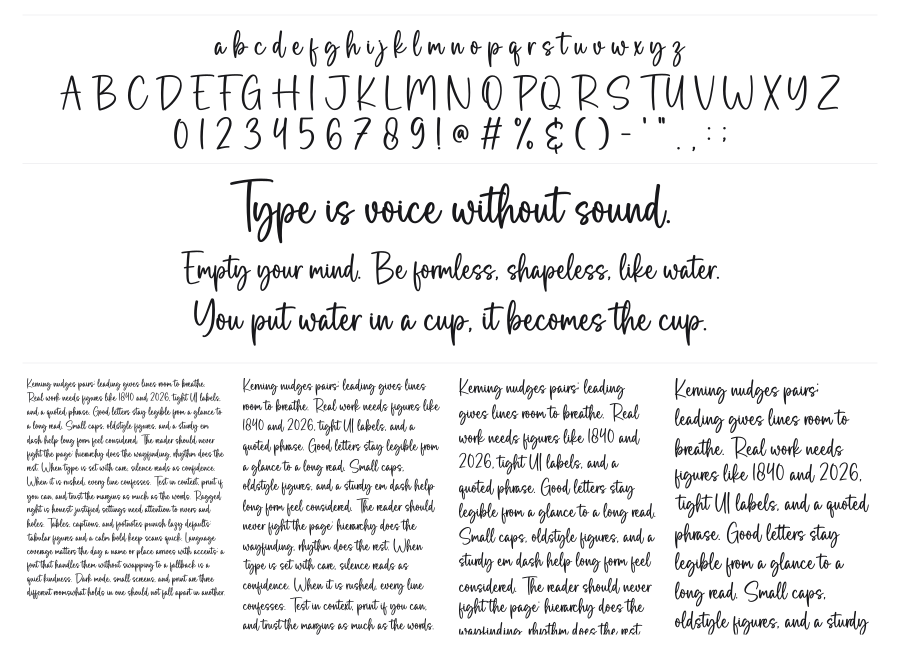 a b c d e f g h i j k l m n o p q r s t u v w x y z
A B C D E F G H I J K L M N O P Q R S T U V W X Y Z
0 1 2 3 4 5 6 7 8 9 ! @ # % & ( ) - ' " . , : ;
Type is voice without sound.
Empty your mind. Be formless, shapeless, like water.
You put water in a cup, it becomes the cup.
Kerning nudges pairs; leading gives lines room to breathe.
Real work needs figures like 1840 and 2026, tight UI labels,
and a quoted phrase. Good letters stay legible from a glance to
a long read. Small caps, oldstyle figures, and a sturdy em
dash help long form feel considered. The reader should never
fight the page; hierarchy does the wayfinding, rhythm does the
rest. When type is set with care, silence reads as confidence.
When it is rushed, every line confesses. Test in context, print if
you can, and trust the margins as much as the words. Ragged
right is honest; justified settings need attention to rivers and
holes. Tables, captions, and footnotes punish lazy defaults;
tabular figures and a calm bold keep scans quick. Language
coverage matters the day a name or place arrives with accents; a
font that handles them without swapping to a fallback is a
quiet kindness. Dark mode, small screens, and print are three
different rooms;what holds in one should not fall apart in another.
Kerning nudges pairs; leading gives lines
room to breathe. Real work needs figures like
1840 and 2026, tight UI labels, and a
quoted phrase. Good letters stay legible from
a glance to a long read. Small caps,
oldstyle figures, and a sturdy em dash help
long form feel considered. The reader should
never fight the page; hierarchy does the
wayfinding, rhythm does the rest. When
type is set with care, silence reads as
confidence. When it is rushed, every line
confesses. Test in context, print if you can,
and trust the margins as much as the words.
Kerning nudges pairs; leading
gives lines room to breathe. Real
work needs figures like 1840 and
2026, tight UI labels, and a
quoted phrase. Good letters stay
legible from a glance to a long read.
Small caps, oldstyle figures, and a
sturdy em dash help long form feel
considered. The reader should never
fight the page; hierarchy does the
wayfinding, rhythm does the rest.
Kerning nudges pairs;
leading gives lines room to
breathe. Real work needs
figures like 1840 and 2026,
tight UI labels, and a quoted
phrase. Good letters stay
legible from a glance to a
long read. Small caps,
oldstyle figures, and a sturdy